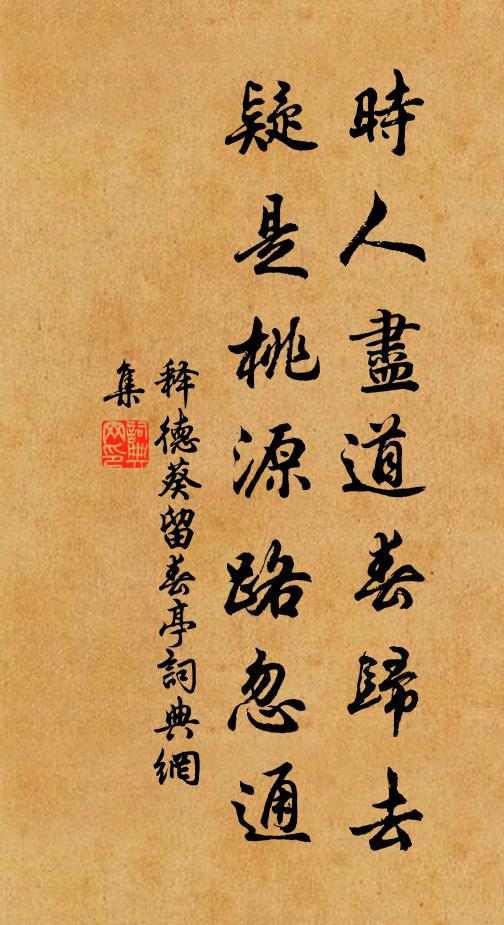 時人盡道春歸去
疑是桃源路忽通
释德葵留春亭詞典網
集
詞典
网印